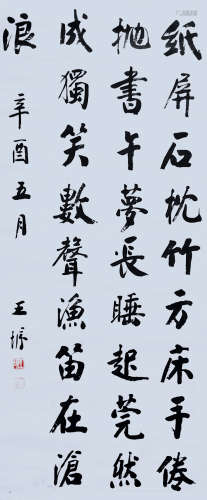 纸屏石枕竹方床手倦
抛书午夢長睡起莞然
成獨笑數聲漁笛在滄
浪
辛酉五月
王